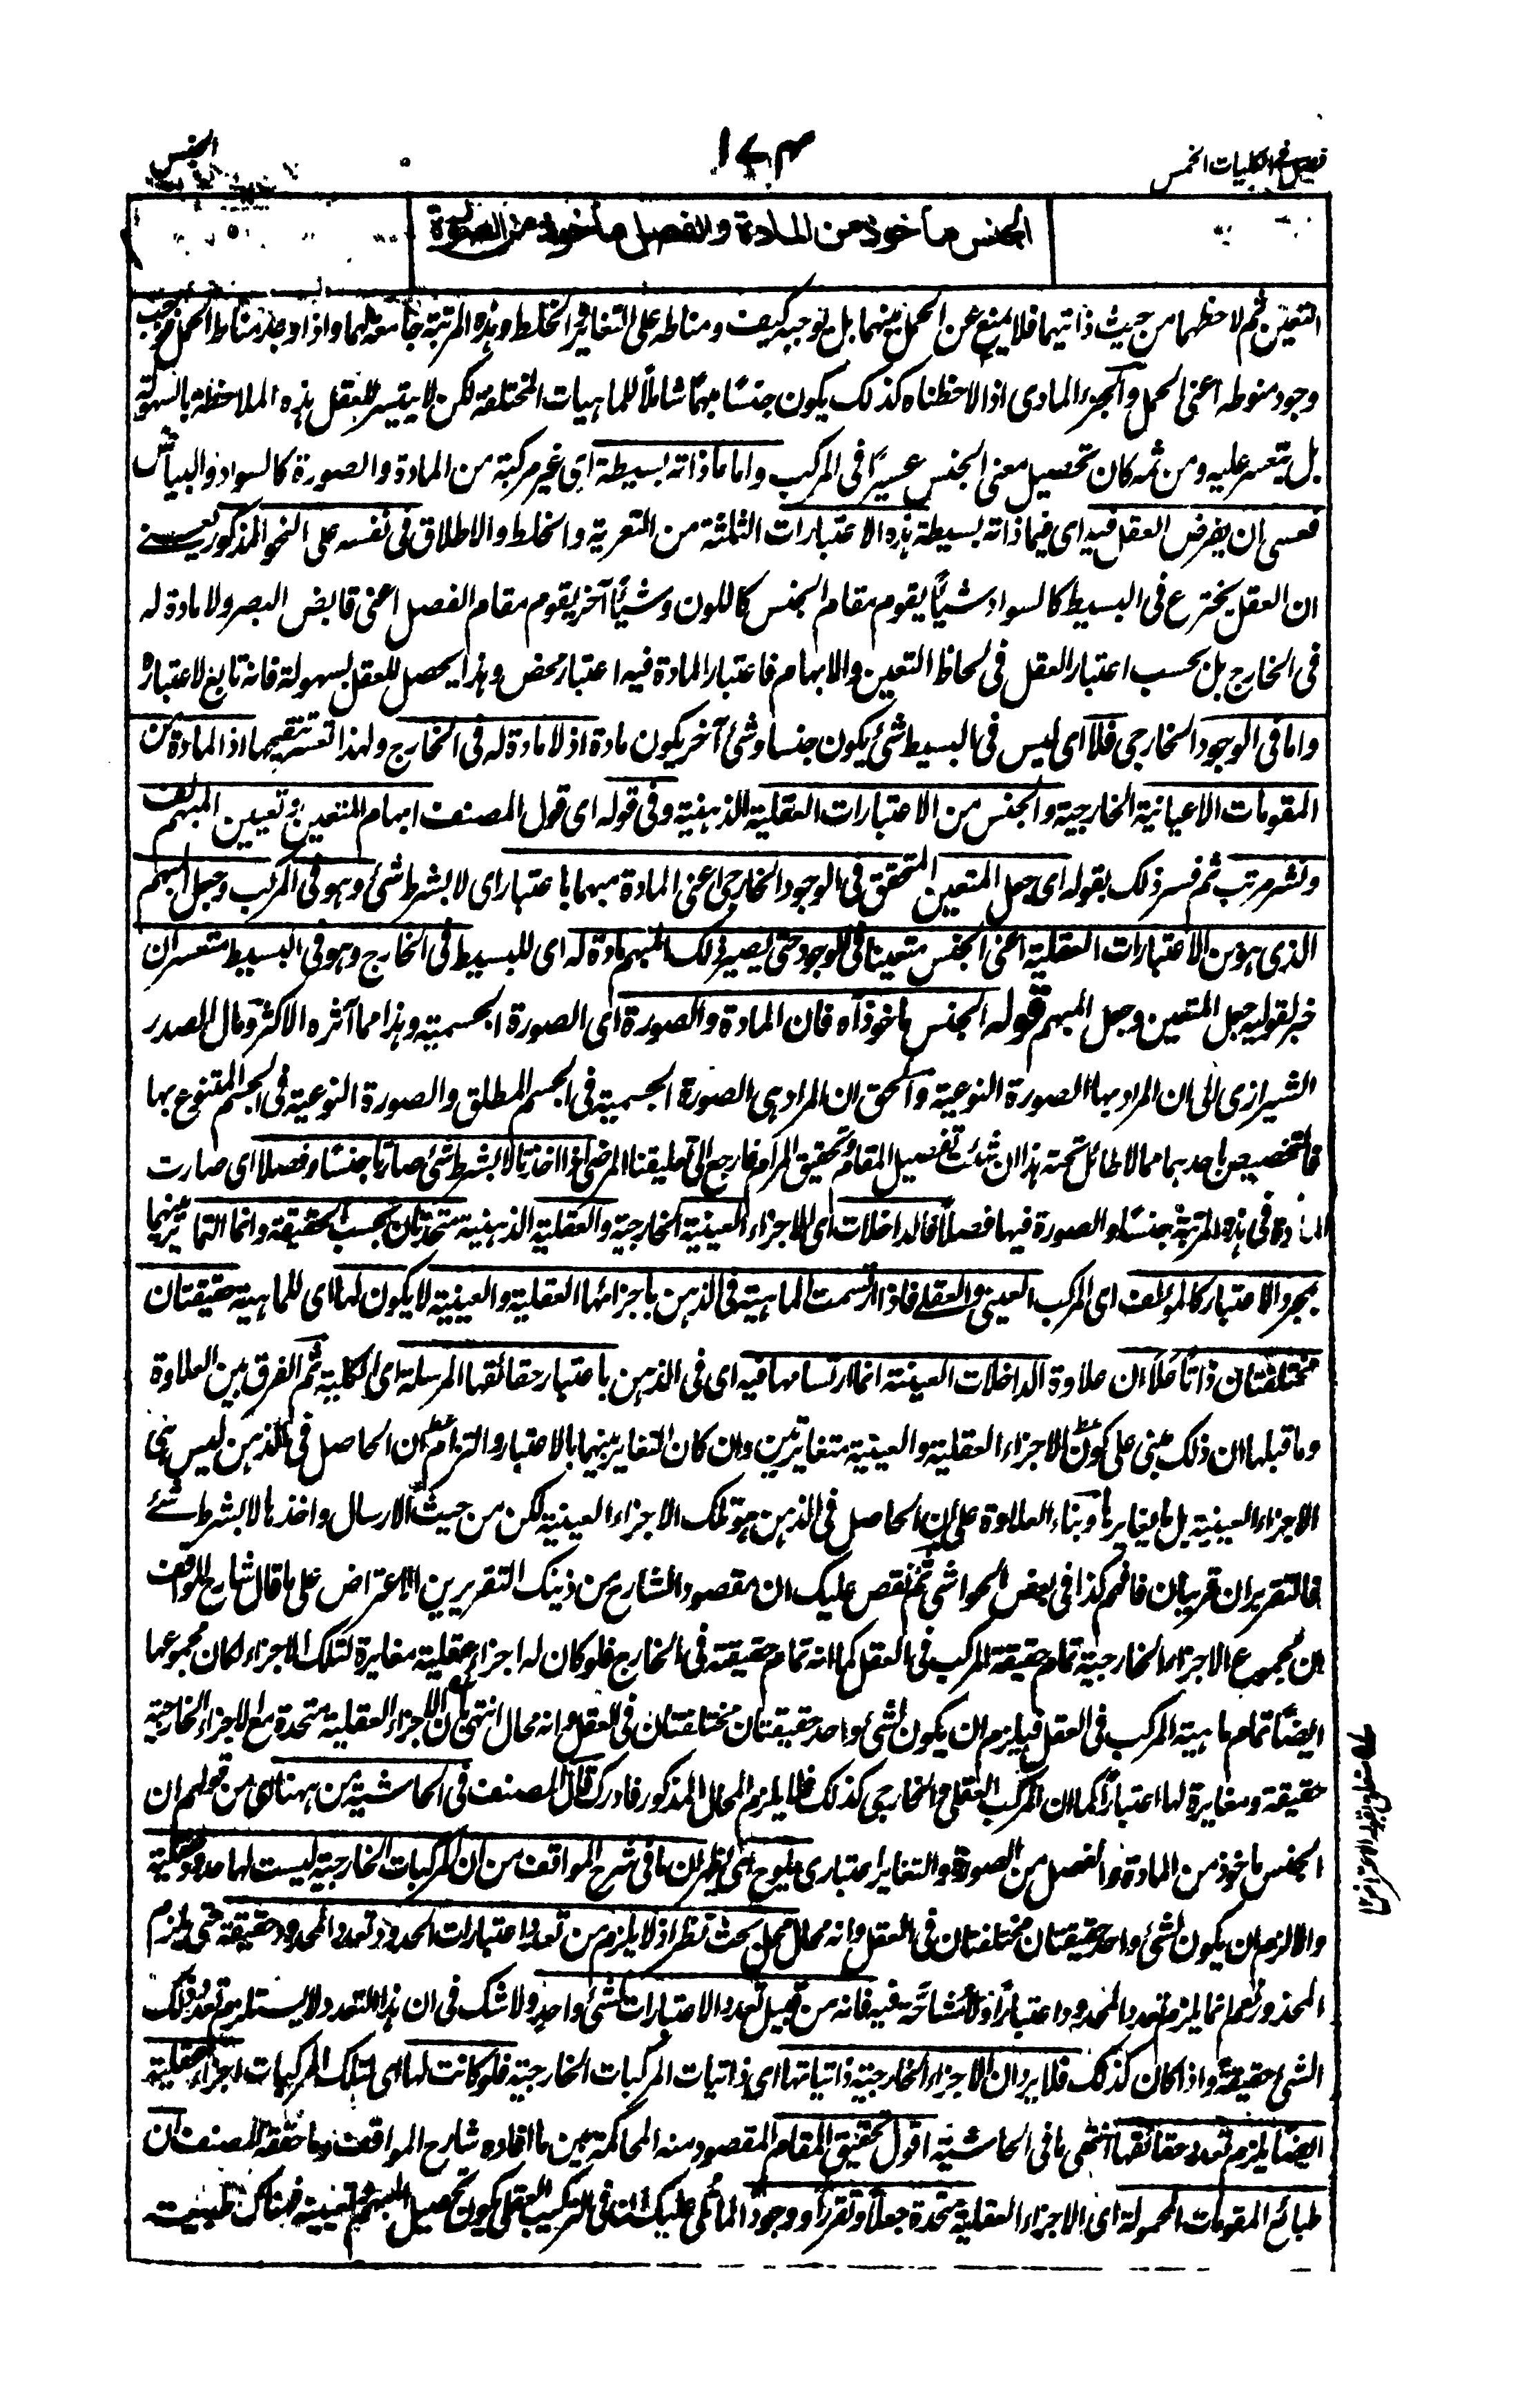 فصل في الكليات الخمس
١٧٤
الجنس
الجنس مأخوذ من المادة والفصل مأخوذ من الصورة
التعين ثم لاحظهما من حيث ذاتيهما فلا يمنع عن الحمل بينهما بل يوجبه كيف ومناطه على التغاير والخلط وهذه المرتبة جامعة لهما واذا وجد مناط الحمل فوجب
وجود منوطه اعني الحمل والجزء المادى اذا لاحظناه كذلك يكون جنسًا مبهمًا شاملًا للماهيات المختلفة لكن لا يتيسر للعقل هذه الملاحظة بالسهولة
بل يتعسر عليه ومن ثمه كان تحصيل معنى الجنس عسيرًا في المركب واما ما ذاته بسيطة اى غير مركبة من المادة والصورة كالسواد والبياض
فعسى ان يفرض العقل فيه اى فيما ذاته بسيطة هذه الاعتبارات الثلثة من التعرية والخلط والاطلاق في نفسه على النحو المذكور يعني
ان العقل يخترع في البسيط كالسواد شيئًا يقوم مقام الجنس كاللون وشيئًا آخر يقوم مقام الفصل اعنى قابض البصر ولا مادة له
في الخارج بل بحسب اعتبار العقل في لحاظ التعين والابهام فاعتبار المادة فيه اعتبار محض وهذا يحصل للعقل بسهولة فانه تابع لاعتباره
واما في الوجود الخارجي فلا اى ليس في البسيط شئ يكون جنسا وشئ آخر يكون مادة اذ لا مادة له في الخارج ولهذا تعسر تنقيحها اذ المادة من
المقومات الاعيانية الخارجية والجنس من الاعتبارات العقلية الذهنية وفي قوله اى قول المصنف ابهام المتعين وتعيين المبهم لف
ونشر مرتب ثم فسر ذلك بقوله اى جعل المتعين المتحقق في الوجود الخارجي اعنى المادة مبهما باعتبار اى لا بشرط شئ وهو في المركب وجعل المبهم
الذى هو من الاعتبارات العقلية اعنى الجنس متعينا في الوجود حتى يصير ذلك المبهم مادة له اى للبسيط في الخارج وهو في البسيط متعسر ان
خبر لقوليه جعل المتعين وجعل المبهم قوله الجنس ماخوذ آه فان المادة والصورة اى الصورة الجسمية وهذا مما آثره الاكثر ومال الصدر
الشيرازى الى ان المراد بها الصورة النوعية والحق ان المراد هى الصورة الجسمية في الجسم المطلق والصورة النوعية في الجسم المتنوع بها
فالتخصيص باحدهما مما لا طائل تحته هذا ان شئت تفصيل المقام وتحقيق المرام فارجع الى تعليقنا المرضى اذا اخذتا لا بشرط شئ صارتا جنسًا وفصلًا اى صارت
المادة في هذه المرتبة جنسًا والصورة فيها فصلًا فالداخلات اى الاجزاء العينية الخارجية والعقلية الذهنية متحدتان بحسب الحقيقة وانما التمايز بينهما
بمجرد الاعتبار كالمؤلف اى المركب العينى والعقلى فاذا ارتسمت الماهية في الذهن باجزائها العقلية والعينية لا يكون لها اى للماهية حقيقتان
مختلفتان ذاتًا علا ان علاوة الداخلات العينية انما ارتسامها فيه اى في الذهن باعتبار حقائقها المرسلة اى الكلية ثم الفرق بين العلاوة
وما قبلها ان ذلك مبنى على كون الاجزاء العقلية والعينية متغايرتين وان كان التغاير بينهما بالاعتبار والتزام ان الحاصل في الذهن ليس هى
الاجزاء العينية بل ما يغايرها وبناء العلاوة على ان الحاصل في الذهن هو تلك الاجزاء العينية لكن من حيث الارسال واخذها لا بشرط شئ
فالتقريران قريبان فافهم كذا في بعض الحواشى ثم نقص عليك ان مقصود الشارح من ذينك التقريرين الاعتراض على ما قال شارح المواقف
ان مجموع الاجزاء الخارجية تمام حقيقة المركب في العقل كما انه تمام حقيقته في الخارج فلو كان له اجزاء عقلية مغايرة لتلك الاجزاء لكان مجموعها
ايضًا تمام ماهية المركب في العقل فيلزم ان يكون لشئ واحد حقيقتان مختلفتان في العقل وانه محال انتهى بان الاجزاء العقلية متحدة مع الاجزاء الخارجية
حقيقة ومغايرة لها اعتبارًا كما ان المركب العقلى والخارجي كذلك فلا يلزم المحال المذكور فادرك قال المصنف في الحاشية من ههنا اى من قولهم ان
الجنس ماخوذ من المادة والفصل من الصورة والتغاير اعتبارى يلوح اى يظهر ان ما في شرح المواقف من ان المركبات الخارجية ليست لها حدود عقلية
والا لزم ان يكون لشئ واحد حقيقتان مختلفتان في العقل وانه محال محل بحث ونظر اذ لا يلزم من تعدد اعتبارات الحدود تعدد المحدود حقيقة حتى يلزم
المحذور نعم انما يلزم تعدد المحدود اعتبارًا ولا مشاحة فيه فانه من قبيل تعدد الاعتبارات لشئ واحد ولا شك في ان هذا التعدد لا يستلزم تعدد ذلك
الشئ حقيقة واذا كان كذلك فلا يرد ان الاجزاء الخارجية ذاتياتها اى ذاتيات المركبات الخارجية فلو كانت لها اى لتلك المركبات اجزاء عقلية
ايضًا يلزم تعدد حقائقها انتهى ما في الحاشية اقول تحقيق المقام المقصود منه المحاكمة بين ما افاده شارح المواقف وما حققه المصنف ان
طبائع المقومات المحمولة اى الاجزاء العقلية متحدة جعلًا وتقررًا ووجودًا لما تلى عليك ان في التركيب العقلى يكون تحصيل المبهم ثم تعيينه فهناك طبيعت